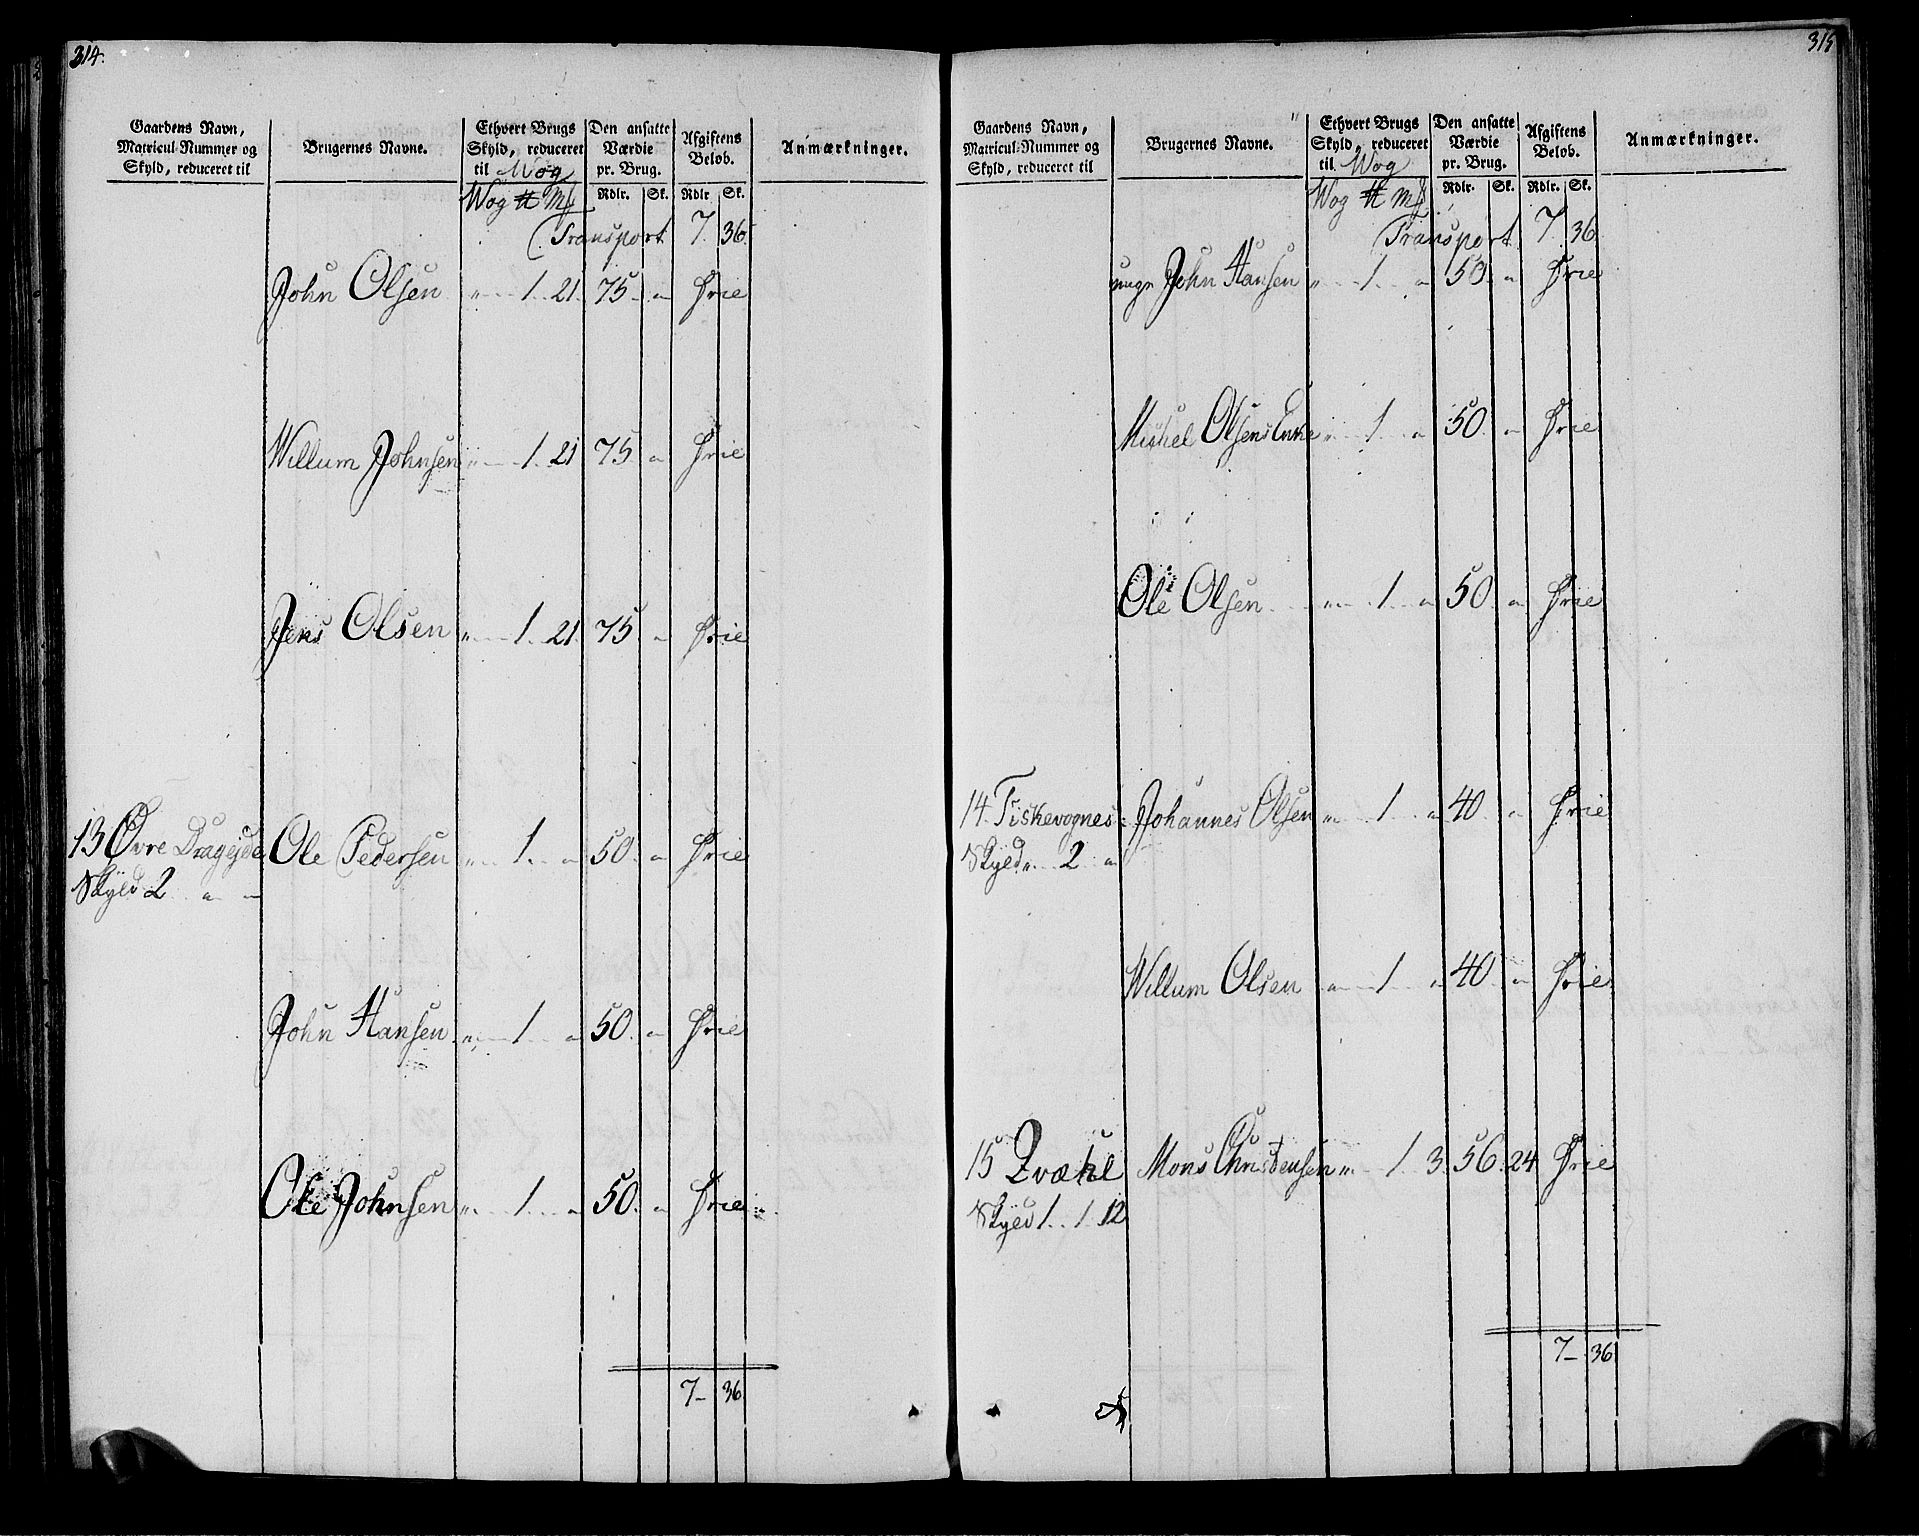 314.
Gaardens Navn, Matricul-Nummer og Skyld, reduceret til
Brugernes Navne.
Ethvert Brugs Skyld, reduceret til Wog
Den ansatte Værdie pr. Brug.
Afgiftens Beløb.
Anmærkninger.
Wog ℔ Mk Rdlr. Sk. Rdlr Sk.
Transport 7. 36.
John Olsen " 1. 21. 75. " Frie
Willum Johnsen " 1. 21 75. " Frie
Jens Olsen " 1. 21. 75. " Frie
13 Øvre Dragejde Ole Pedersen " 1. " 50. " Frie
Skyld 2. " "
John Hansen " 1. " 50. " Frie
Ole Johnsen " 1. " 50. " Frie
7– 36
315
Gaardens Navn, Matricul-Nummer og Skyld, reduceret til
Brugernes Navne.
Ethvert Brugs Skyld, reduceret til Wog
Den ansatte Værdie pr. Brug.
Afgiftens Beløb.
Anmærkninger.
Wog ℔ Mk Rdlr. Sk. Rdlr. Sk.
Transport 7. 36
unge John Hansen " 1. " 50. " Frie
Mickel Olsens Enke " 1. " 50. " Frie
Ole Olsen " 1. " 50. " Frie
14. Fiskevognes Johannes Olsen " 1. " 40. " Frie
Skyld " 2 "
Willum Olsen " 1. " 40. " Frie
15 Qvæhl Mons Christensen " 1. 3. 56. 24 Frie
Skyld 1. 1 12
7– 36